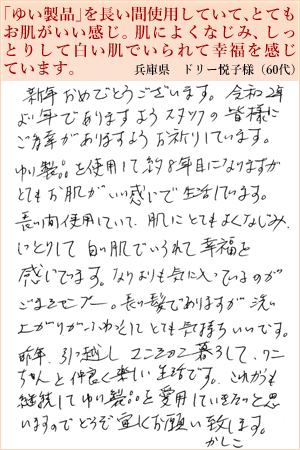 「ゆい製品」を長い間使用していて、とても
お肌がいい感じ。肌によくなじみ、しっ
とりして白い肌でいられて幸福を感じ
ています。
兵庫県 ドリー悦子様（60代）
新年おめでとうございます。令和2年
よい年でありますようスタッフの皆様に
ご多幸がありますようお祈りしています。
ゆい製品を使用して約8年目になりますが
とてもお肌がいい感じで生活しています。
長い間使用していて、肌にとてもよくなじみ、
しっとりして白い肌でいられて幸福を
感じています。なによりも気に入っているのが
ごませセンプー。長い髪でありますが洗い
上がりがふわっとしてとても気持ちいいです。
昨年、引っ越し ここで暮して、ワニ
ちゃんと仲良く楽しい生活です。これからも
継続してゆい製品を愛用していきたいと思
いますのでどうぞ宜しくお願い致します。
かしこ